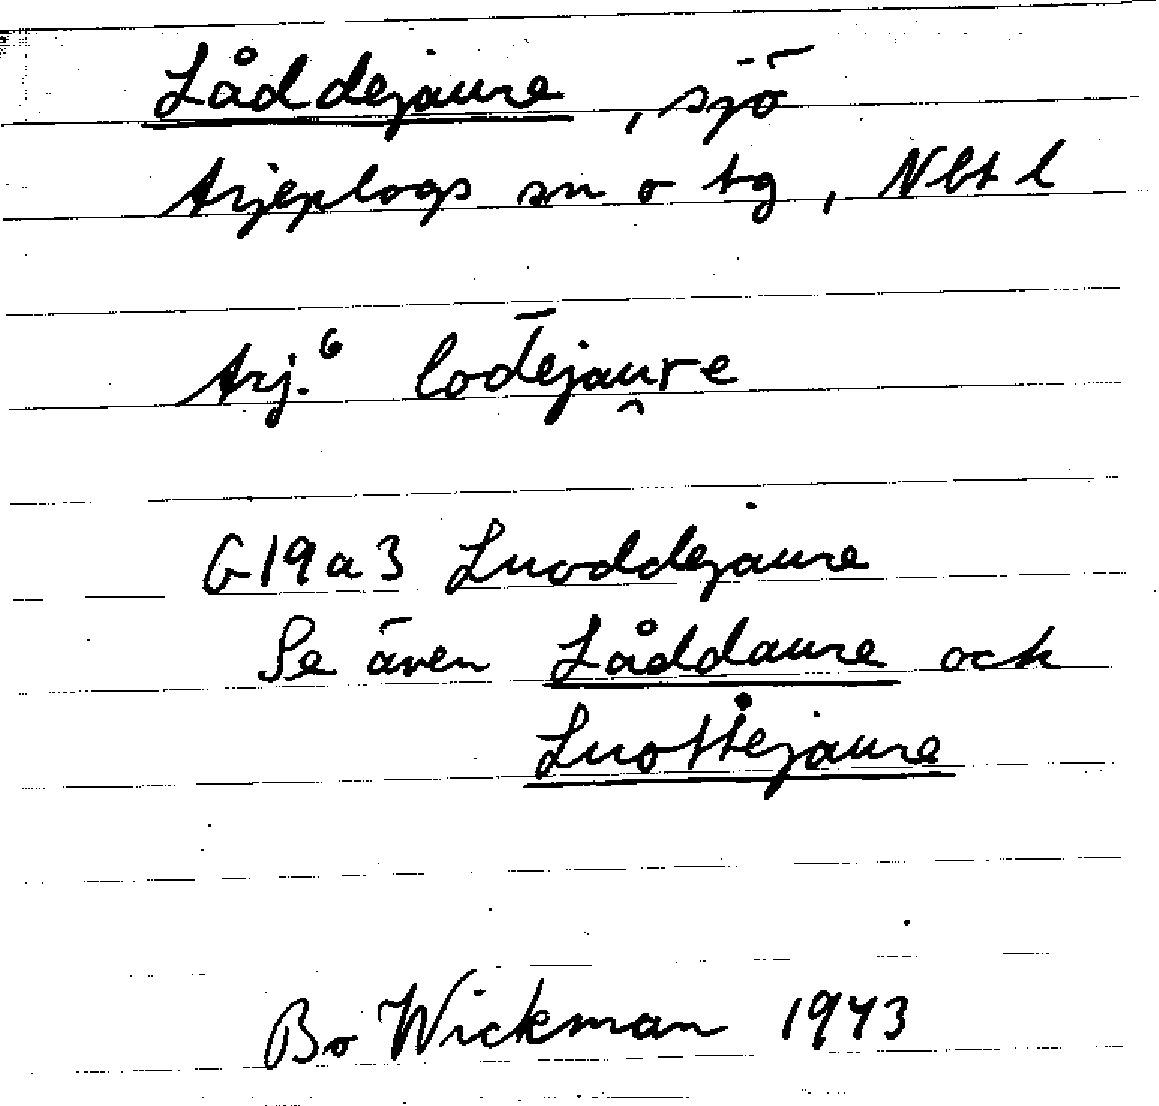 Låddejaure, sjö
Arjeplogs sn o tg, Nbt l
Arj.⁶ lod̄ejau̯re
G19a3 Luoddejaure
Se även Låddaure och
Luottejaure
Bo Wickman 1943